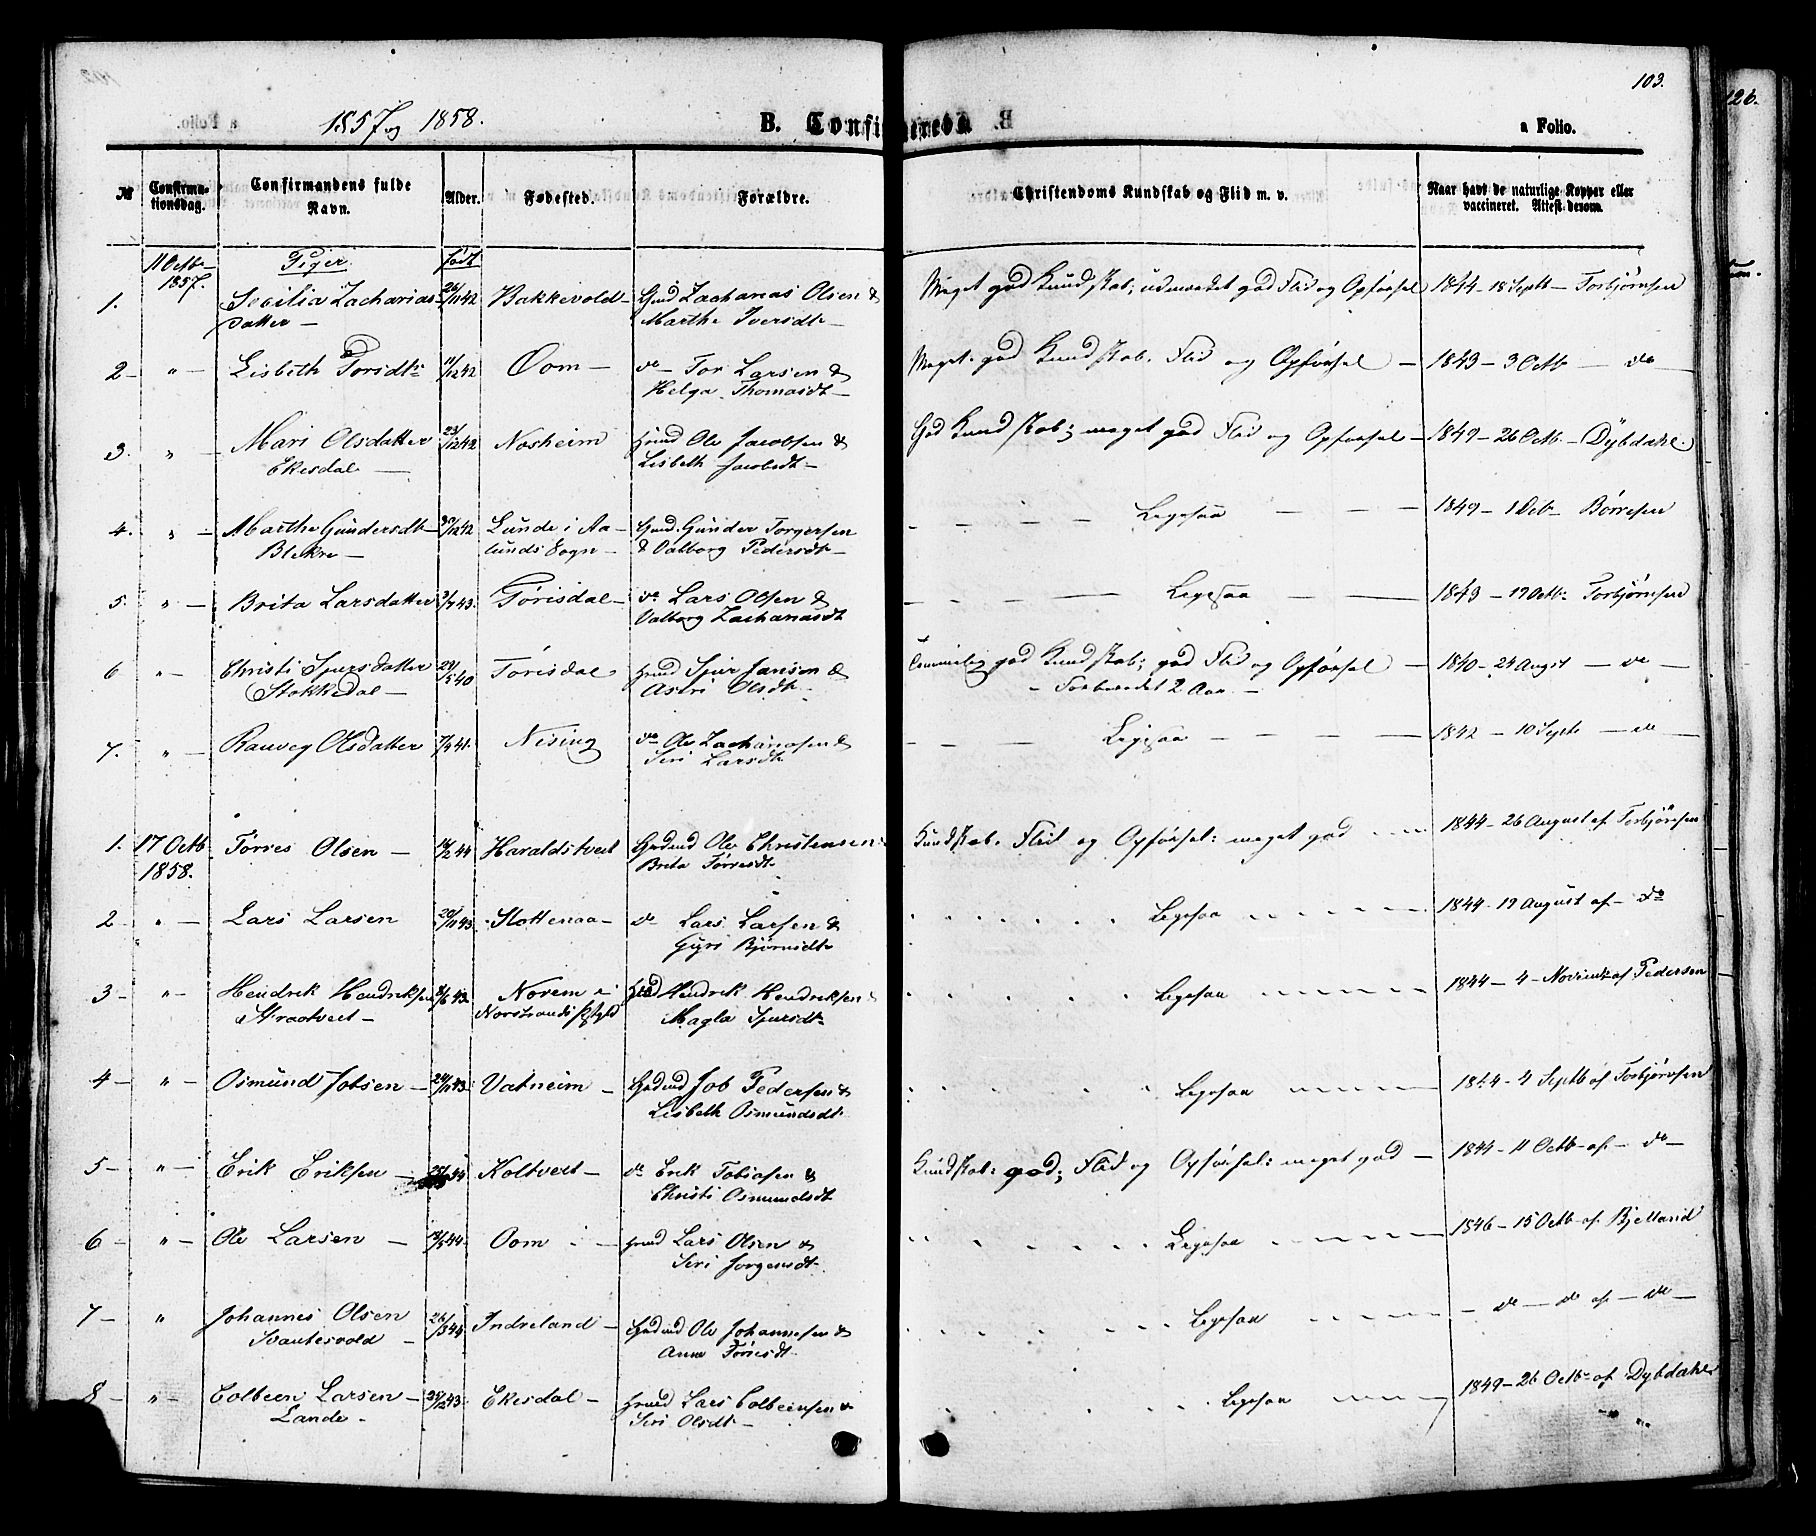 103.
126.
1857 og 1858.
B. Confirmerede
a Folio.
№
Confirma-
tionsdag.
Confirmandens fulde
Navn.
Alder.
Fødested.
Forældre.
Christendoms Kundskab og Flid m. v.
Naar havt de naturlige Kopper eller
vaccineret. Attest derom.
11 Octb- Piger født
1857.
1. Secilia Zacharias- 26/11 42 Bakkevold- Gmd Zacharias Olsen & Meget god Kundskab; udmærket god Flid og Opførsel 1844-18 Septb- Torbjørnsen
datter - Marthe Iversdt-
2- " - Lisbeth Torsdt- 11/12 42 Oom- do- Tor Larsen & Meget god Kundskab. Flid og Opførsel - 1843-3 Octb - do -
Helga Thomasdt-
3. " - Mari Olsdatter 23/12 42 Nosheim Huusmd Ole Jacobsen & God Kundskab; meget god Flid og Opførsel- 1849-26 Octb- Dybdahl.
Ekesdal - Lisbeth Jacobsdt-
4. " - Marthe Gundersdt- 30/12 42 Lunde i Aa- Gmd. Gunder Torgersen - - - - Ligesaa - - - 1849- 1 Octb- Børresen
Blekre - lunds Sogn- & Valborg Pedersdt-
5. " - Brita Larsdatter 3/7 43. Torisdal- do Lars Olsen & - - - - Ligesaa - - 1843 - 19 Octb- Torbjørnsen
Valborg Zachariasdt
6 " - Christi Sjursdatter 29/5 40 Torisdal Huusmd Sjur Jansen & Temmelig god Kundskab; god Flid og Opførsel - 1840-24 Augst - do -
Stokkedal - Aseri Olsdt- - Forberedet 2 Aar. -
7. " - Rauveg Olsdatter 7/9 41. Nising do Ole Zachariasen & - - - Ligesaa - - - - 1842 -10 Septb - do -
Siri Larsdt
1. 17 Octb Törres Olsen - 14/2 44 Haraldstveit Gdmd Ole Christensen & Kundskab. Flid og Opførsel: meget god - - 1844-26 August af Torbjörnsen
1858. Brita Törresdt-
2- " - Lars Larsen 20/11 43 Slottenaa- do Lars Larsen & Ligesaa 1844-19 August af- do
Guri Bjørnsdt-
3- "- Hendrik Hendriksen 43 Norem i Gmd Hendrik Hendriksen & Ligesaa 1844-4-Novembr af Pedersen
Straatveit- Norstrands Pstgld Magla Sjursdt-
4- "- Osmund Jobsen - 24/11 43- Vatneim - Gdmd Job Pedersen & Ligesaa 1844-4 Septb af Torbjørnsen
Lisbeth Osmundsdt-
5- "- Erik Eriksen - 44 Koltveit- do Erik Tobiasen & Kundskab: god; Flid og Opførsel: meget god - 1844- 11 Octb- af- do-
Christi Osmundsdt
6- "- Ole Larsen - 18/5 44- Oom - Huusmd Lars Olsen & Ligesaa 1846-15 Octb-af Bjelland
Siri Jorgensdt-
7- " Johannes Olsen 26/3 44 Indreland- Gdmd Ole Johannesen & Ligesaa - do - do af - do -
Svautesvold - Anna Törresdt-
8- "- Colbeen Larsen- 12 43- Ekesdal- Huusmd Lars Colbeinsen & Ligesaa 1849-26 Octb- af Dybdahl
Lande- Siri Olsdt-